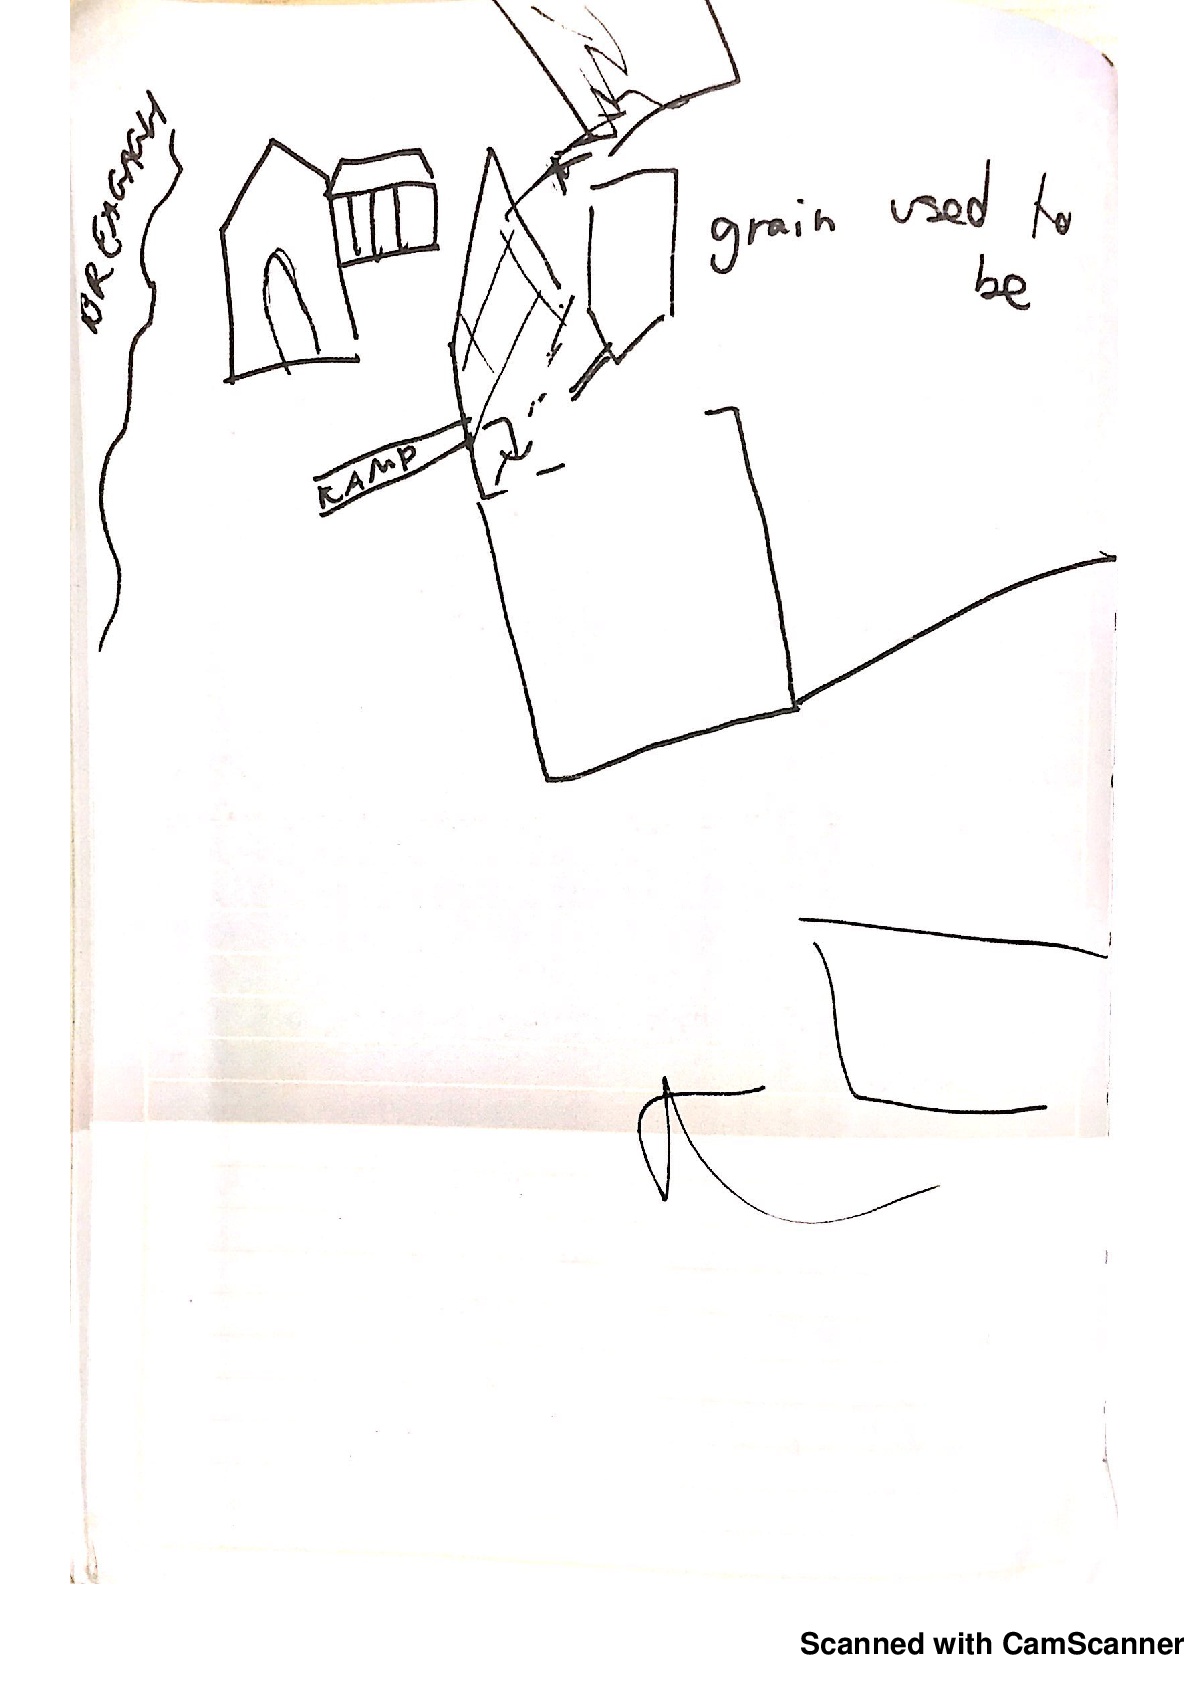 BREAGAGH
grain used to
be
RAMP
Scanned with CamScanner